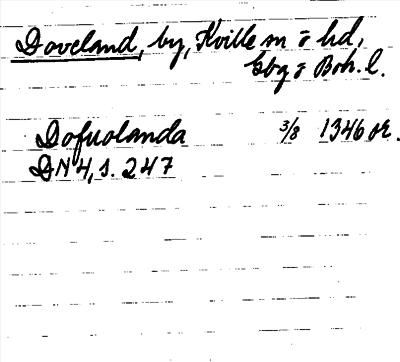 Doveland, by, Kville sn o hd,
Gbg o Boh. l.
Dofuolanda 3/8 1346 or.
DN 4, s. 247